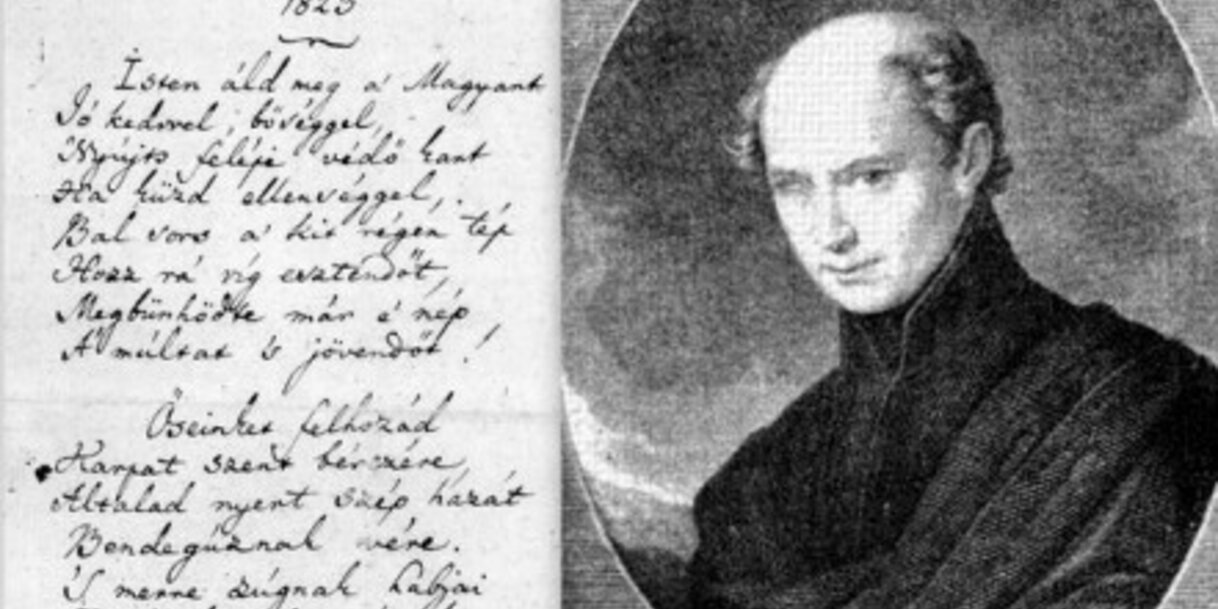 1823
Isten áld meg a' Magyart
Jó kedvvel, bőséggel,
Nyújts feléje védő kart
Ha küzd ellenséggel,
Bal sors a' kit régen tép
Hozz rá víg esztendőt,
Megbűnhödte már e' nép
A' múltat 's jövendőt!
Őseinket felhozád
Kárpát szent bérczére,
Általad nyert szép hazát
Bendegúznak vére.
'S merre zúgnak habjai